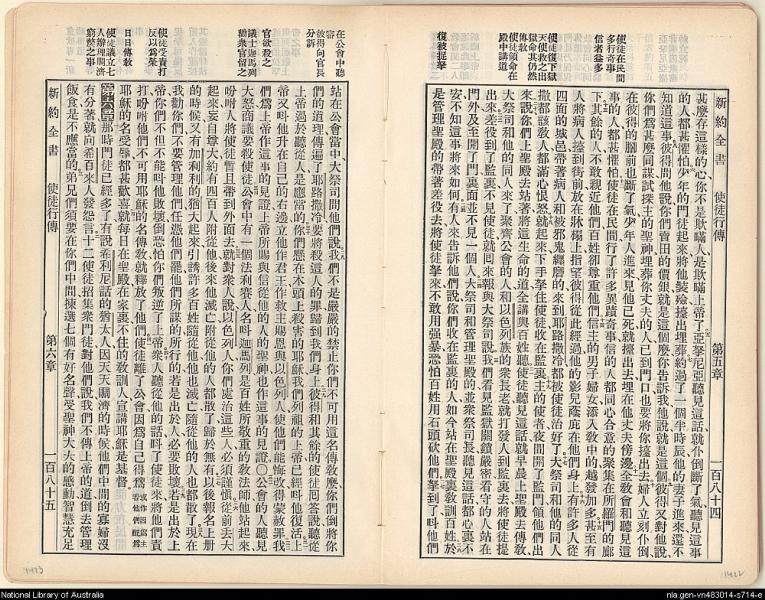 使徒在民間
多行奇事
信者益多
使徒復下獄
天使救之出
獄命其仍然
傳教
使徒領命在
殿中講道
復被提拏
新約全書 使徒行傳 第五章 一百八十四
甚麼存這樣的心、你不是欺瞞人、是欺瞞上帝了、亞拏尼亞聽見這話、就仆倒斷了氣、聽見這事
的人都甚懼怕、少年的門徒起來、將他裝殮擡出埋葬、約過了一個半時辰、他的妻子進來、還不
知道這事、彼得問他說、你們賣田的價銀、就是這個麼、你告訴我、他說、就是這個、彼得又對他說、
你們爲甚麼同謀試探主的聖神、埋葬你丈夫的人、已到門口、也要將你擡出去、婦人立刻仆倒
在彼得的脚前、也斷了氣、少年人進來、見他已死、就擡出去、埋在他丈夫傍邊、全敎會和聽見這
事的人、都甚懼怕、使徒在民間行了許多異蹟奇事、信的人都同心合意的聚集在所羅門的廊
下、其餘的人、不敢親近他們、百姓卻尊重他們、信主的男子婦女添入敎中的、越發加多、甚至有
人將病人擡到街前、放在牀榻上、指望彼得從此經過、他的影兒蔭庇在他們身上、有許多人從
四面的城邑、帶著病人和被邪鬼纏磨的、來到耶路撒冷、都被使徒治好了、大祭司和他的同人、
撒都該敎人、都滿心恨怒、就起來下手拏住使徒、收在監裏、主的使者夜間開了監門、領他們出
來、說、你們上聖殿去站著、將這生命的道、全講與百姓聽、使徒聽見這話、就早晨上聖殿去傳敎、
大祭司和他的同人來了、聚齊公會的人、和以色列族的衆長老、就打發人到監裏去、將使徒提
出來、差役到了監裏、不見使徒、就回來報與大祭司說、我們看見監獄關鎖嚴密、看守的人站在
門外、及至開了門、裏面並不見一個人、大祭司和管理聖殿的、並衆祭司長、聽見這話、都心裏不
安、不知這事將來如何、有人來告訴他們說、你們收在監裏的人、如今站在聖殿裏敎訓百姓、於
是管理聖殿的、帶著差役去、將使徒拏來、不敢用強暴、恐怕百姓用石頭砍他們、拏到了、叫他們
在公會中聽
審
彼得向官長
分訴
官欲殺之
議士迦馬列
勸衆官留之
使徒受責打
反以爲榮
日日傳教
使徒議立七
人辦理周濟
窮寒之事
新約全書 使徒行傳 第六章 一百八十五
站在公會當中、大祭司問他們說、我們不是嚴嚴的禁止你們、不可用這名傳敎麼、你們倒將你
們的道理、傳遍了耶路撒冷、要將殺這人的罪歸到我們身上、彼得和其餘的使徒回答說、聽從
上帝過於聽從人、是應當的、你們懸在木頭上殺害的耶穌、我們列祖的上帝已經叫他復活、上
帝又叫他升在自己的右邊、立他作君王、作救主、賜恩與以色列人、使他們能悔改得蒙赦罪、我
們爲上帝作這事的見證、上帝所賜與信從他的人的聖神、也作這事的見證、〇公會的人聽見
大怒、商議要殺使徒、公會中有一個法利賽人、名叫迦馬列、是百姓所敬重的敎法師、他站起來、
吩咐人將使徒暫且帶到外面去、就對衆人說、以色列人、你們處治這些人、必須謹愼、從前丟大
起來、妄自尊大、約有四百人附從他、後來他滅亡、附從他的人都散了、歸於無有、以後報名上册
的時候、又有加利利的猶大起來、引誘許多百姓隨從他、他也滅亡、隨從他的人也都散了、現在
我勸你們、不要管理他們、任憑他們罷、他們所謀的所行的、若是出於人、必要敗壞、若是出於上
帝、你們不但不能叫他敗壞、倒恐怕你們叛逆了上帝、衆人聽從他的話、叫了使徒來、將他們責
打、吩咐他們不可用耶穌的名傳敎、就釋放了他們、使徒離了公會、因爲自己得爲
耶穌的名受辱、都甚歡喜、就每日在聖殿、在家裏、不住的敎訓人、宣講耶穌是基督、
第六章 那時門徒已經多了、有說希利尼話的猶太人、因天天賙濟的時候、他們中間的寡婦沒
有分著、就向希百來人發怨言、十二使徒招集衆門徒、對他們說、我們不傳上帝的道、倒去管理
飯食、是不應當的、弟兄們、須要在你們中間揀選七個有好名聲、受聖神大大的感動、智慧充足
National Library of Australia
nla.gen-vn483014-s714-e